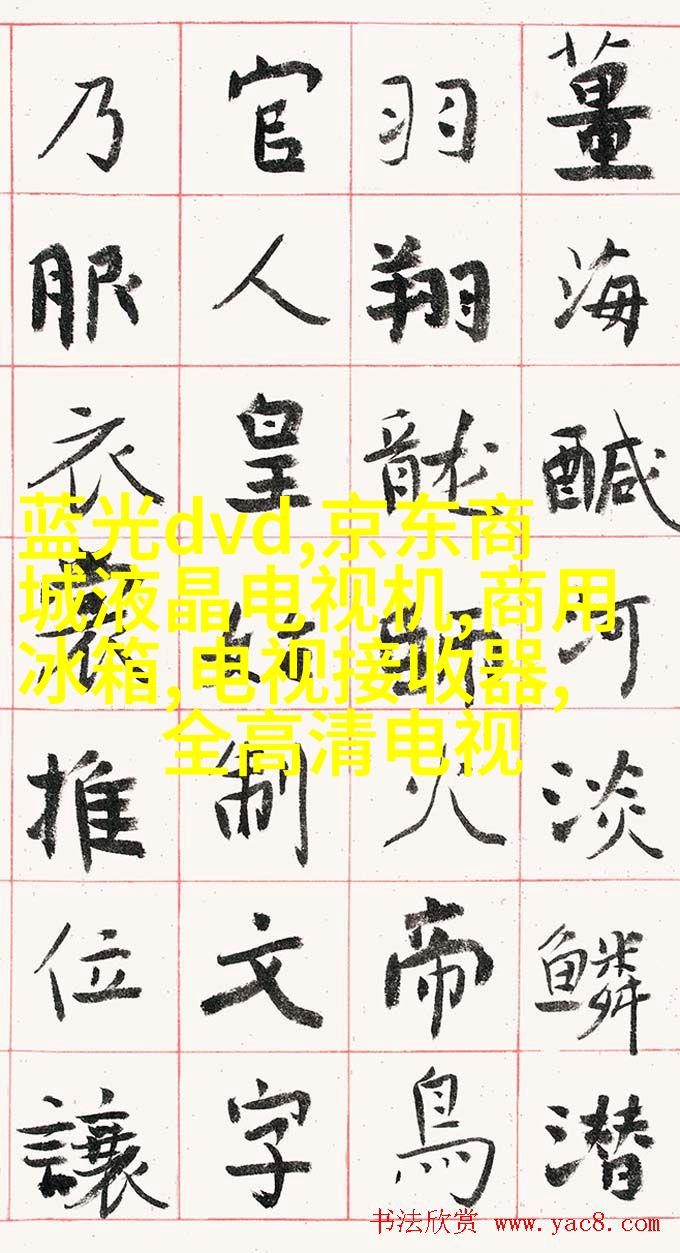 薑海醎河淡鱗潛
羽翔龍師火帝鳥
官人皇始制文字
乃服衣裳推位讓
蓝光dvd,京东商
城液晶电视机,商用
冰箱,电视接收器,
全高清电视
书法欣赏 www.yac8.com